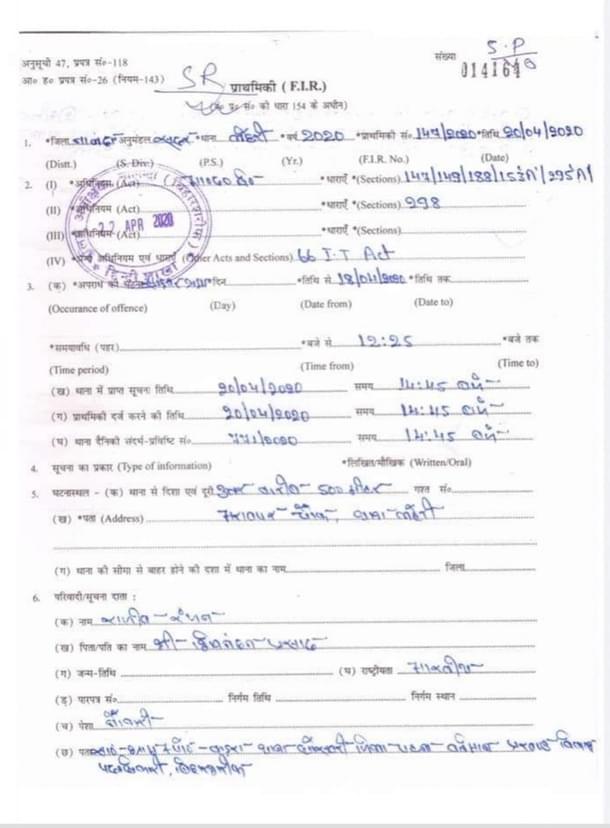 अनुसूची 47, प्रपत्र सं०-118
संख्या S.P
आ० ह० प्रपत्र सं०-26 (नियम-143)
014164
SR प्राथमिकी ( F.I.R.)
प्र० सं० की धारा 154 के अधीन)
1. *जिला नालन्दा अनुमंडल सदर *थाना लहेरी *वर्ष 2020 *प्राथमिकी सं. 147/2020 *तिथि 20/04/2020
(Distt.) (S. Div.) (P.S.) (Yr.) (F.I.R. No.) (Date)
2. (I) *अधिनियम (Act) भा०द०वि० *धाराएँ *(Sections) 147/149/188/153A/295A
(II) *अधिनियम (Act) *धाराएँ *(Sections) 298
(III) *अधिनियम (Act) *धाराएँ *(Sections)
22 APR 2020
(IV) *अन्य अधिनियम एवं धाराएँ (Other Acts and Sections) 66 I.T Act
हिन्दी शाखा
3. (क) *अपराध की घटना *दिन *तिथि से 18/04/2020 *तिथि तक
(Occurance of offence) (Day) (Date from) (Date to)
*समयावधि (पहर) *बजे से 12:25 *बजे तक
(Time period) (Time from) (Time to)
(ख) थाना में प्राप्त सूचना तिथि 20/04/2020 समय 14:45 बजे
(ग) प्राथमिकी दर्ज करने की तिथि 20/04/2020 समय 14:45 बजे
(घ) थाना दैनिकी संदर्भ-प्रविष्टि सं० 771/2020 समय 14:45 बजे
4. सूचना का प्रकार (Type of information) *लिखित/मौखिक (Written/Oral)
5. घटनास्थल - (क) थाना से दिशा एवं दूरी 500 मीटर गश्त सं०
(ख) *पता (Address) भरावपर चौक, थाना लहेरी
(ग) थाना की सीमा से बाहर होने की दशा में थाना का नाम जिला
6. परिवादी/सूचना दाता :
(क) नाम राजीव रंजन
(ख) पिता/पति का नाम श्री प्रसाद
(ग) जन्म-तिथि (घ) राष्ट्रीयता भारतीय
(ङ) पारपत्र सं० निर्गम तिथि निर्गम स्थान
(च) पेशा नौकरी
(छ) पता थाना जिला पटना वर्तमान प्रखण्ड विकास
पदाधिकारी, बिहारशरीफ